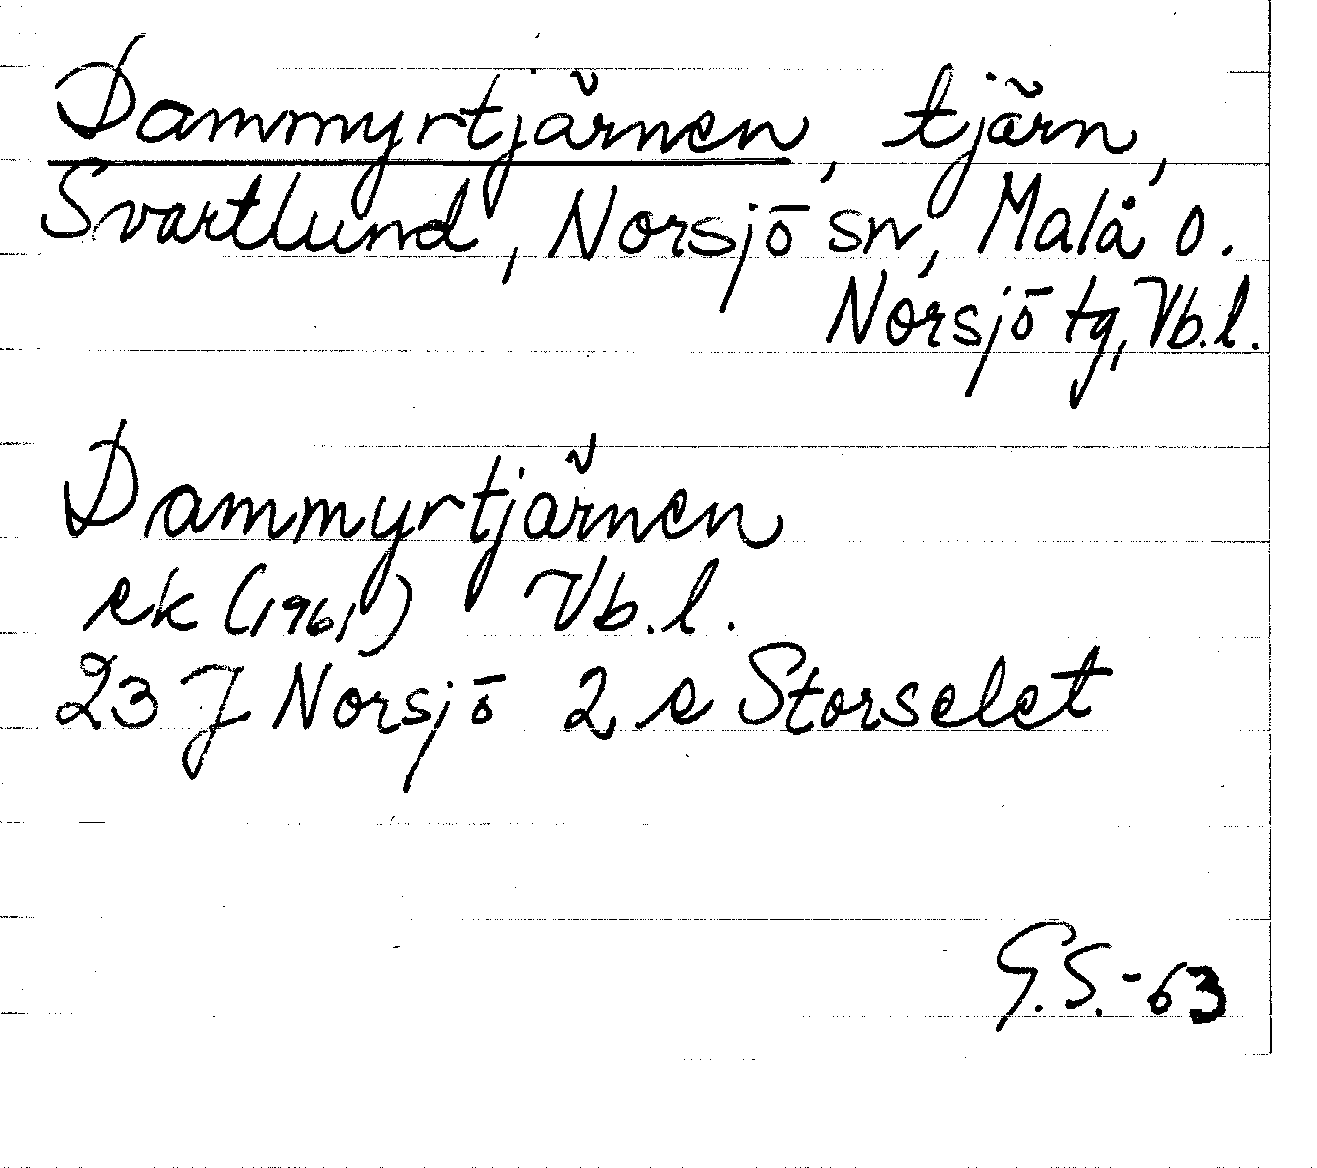 Dammyrtjärnen, tjärn,
Svartlund, Norsjö sn, Malå o.
Norsjö tg, Vb.l.
Dammyrtjärnen
ek (1961) Vb.l.
23 J Norsjö 2 e Storselet
G.S.-63